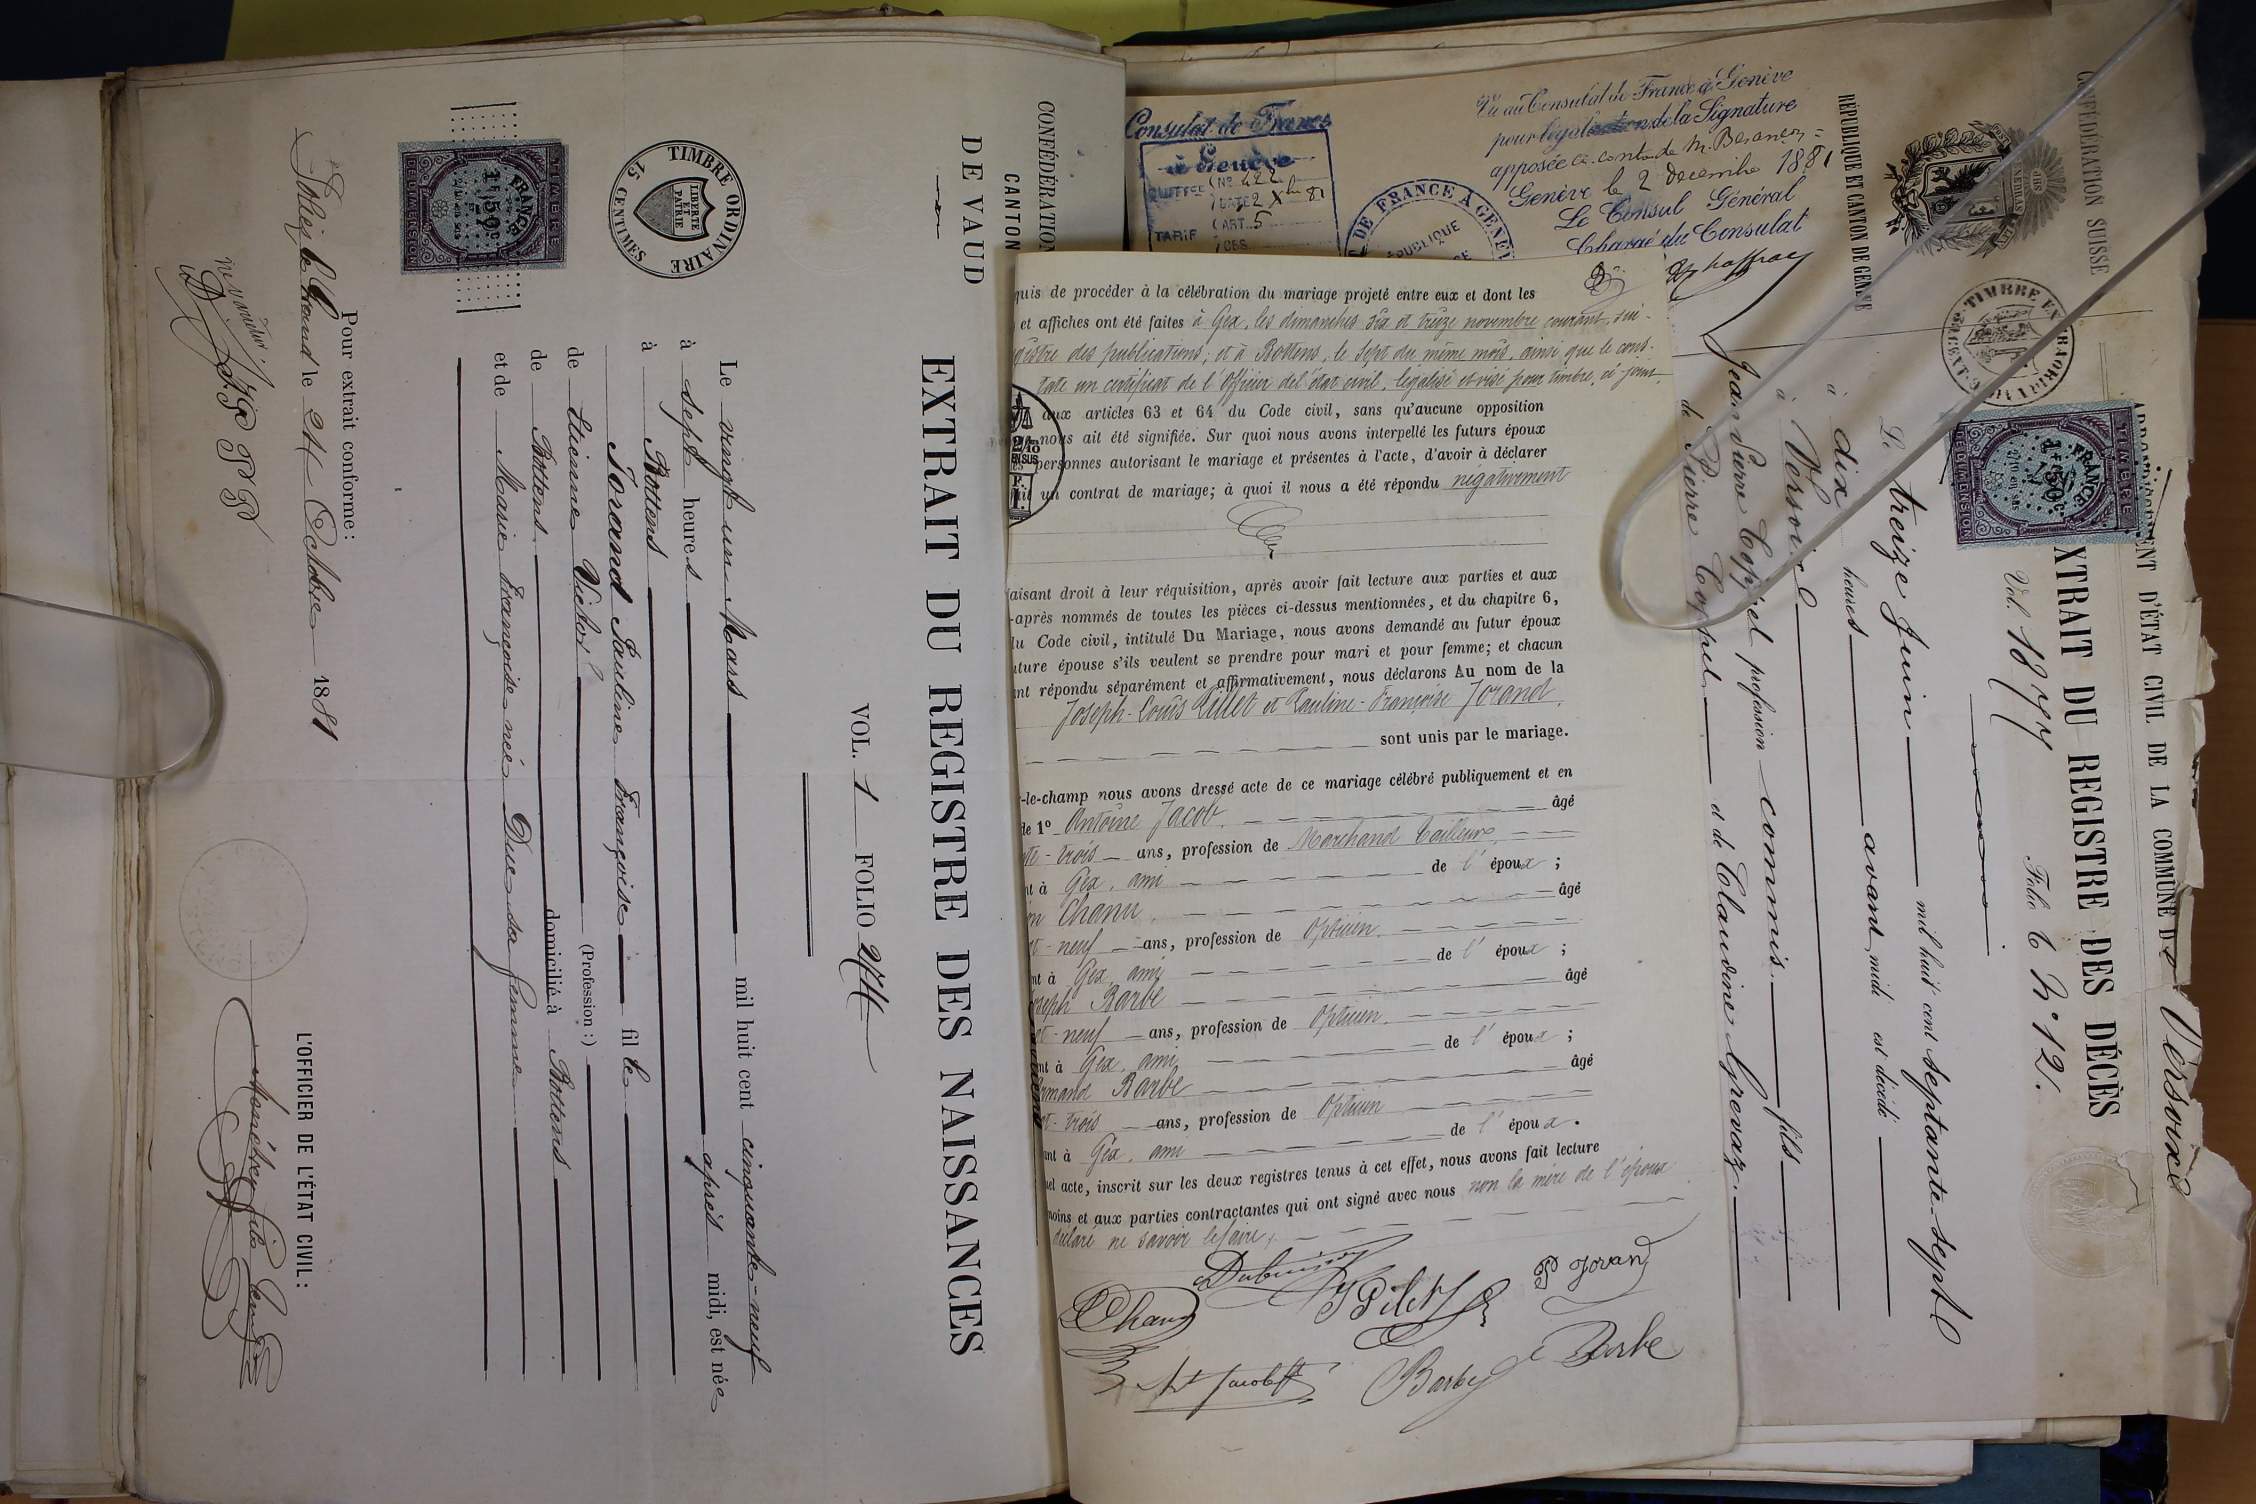 CONFÉDÉRATION
CANTON
DE VAUD
EXTRAIT DU REGISTRE DES NAISSANCES
VOL. 1 FOLIO
Le vingt un Mars mil huit cent cinquante-neuf
à sept heures après midi, est née
à Bottens
Jorand Pauline Françoise fille
de Etienne Victor (Profession:)
de Bottens domicilié à Bottens
et de Marie Françoise née Duc sa femme
Pour extrait conforme:
le 24 Octobre 1881
L'OFFICIER DE L'ÉTAT CIVIL:
TIMBRE ORDINAIRE
LIBERTÉ
ET
PATRIE
15 CENTIMES
TIMBRE
FRANCE
1f,50c
2/10 en sus
DE DIMENSION
Consulat de France
à Genève
No 422
DATE 2 Xbre 81
TARIF
ART. 5
Vu au Consulat de France à Genève
pour légalisation de la Signature
apposée ci-contre de M. Besançon
Genève le 2 décembre 1881
Le Consul Général
Chargé du Consulat
DE FRANCE A GENÈV
quis de procéder à la célébration du mariage projeté entre eux et dont les
et affiches ont été faites à Gex, les dimanches six et treize novembre courant, sui-
gistre des publications; et à Bottens, le sept du même mois, ainsi que le cons-
tate un certificat de l'officier de l'état civil, légalisé et visé pour timbre, ci joint,
aux articles 63 et 64 du Code civil, sans qu'aucune opposition
nous ait été signifiée. Sur quoi nous avons interpellé les futurs époux
personnes autorisant le mariage et présentes à l'acte, d'avoir à déclarer
fait un contrat de mariage; à quoi il nous a été répondu négativement
faisant droit à leur réquisition, après avoir fait lecture aux parties et aux
-après nommés de toutes les pièces ci-dessus mentionnées, et du chapitre 6,
du Code civil, intitulé Du Mariage, nous avons demandé au futur époux
uture épouse s'ils veulent se prendre pour mari et pour femme; et chacun
ant répondu séparément et affirmativement, nous déclarons Au nom de la
Joseph-Louis Pillet et Pauline-Françoise Jorand,
sont unis par le mariage.
-le-champ nous avons dressé acte de ce mariage célébré publiquement et en
de 1o Antoine Jacob, âgé
te-trois ans, profession de Marchand tailleur,
nt à Gex, ami de l'époux;
Chanu, âgé
t-neuf ans, profession de Opticien,
nt à Gex, ami de l'époux;
oseph Barbe âgé
et-neuf ans, profession de Opticien,
nt à Gex, ami de l'époux;
rmand Barbe âgé
t-trois ans, profession de Opticien
ant à Gex, ami de l'époux.
uel acte, inscrit sur les deux registres tenus à cet effet, nous avons fait lecture
moins et aux parties contractantes qui ont signé avec nous non la mère de l'époux
déclaré ne savoir le faire,
P Jorand
Barbe
CONFÉDÉRATION SUISSE
RÉPUBLIQUE ET CANTON DE GENÈVE
POST TENEBRAS
ARRONDISSEMENT D'ÉTAT CIVIL DE LA COMMUNE De Versoix
EXTRAIT DU REGISTRE DES DÉCÈS
Vol. 1877 Folio 6 No 12.
Le treize Juin mil huit cent septante-sept
à dix heures avant midi est décédé
à Versoix
Jean Pierre Coppel profession commis fils
de Pierre Coppel et de Claudine Grevaz.
TIMBRE
FRANCE
1f,50c
2/10 en sus
DE DIMENSION